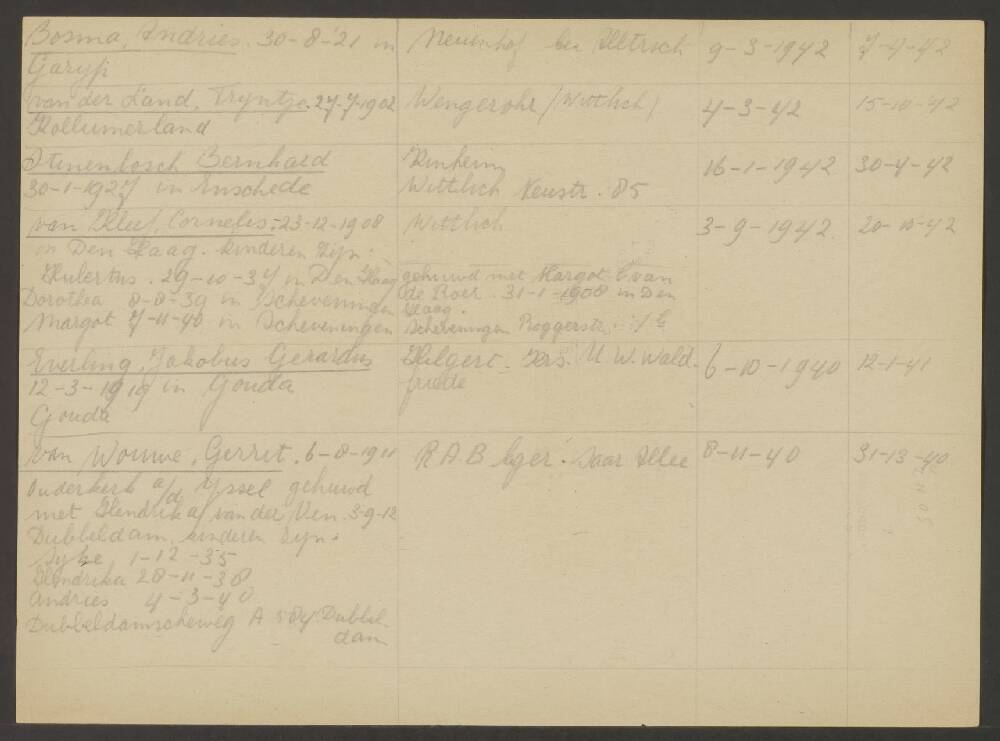 Bosma, Andries. 30-8-'21 in Neuenhof bei 9-3-1942 7-4-42
Garyp
van der Land, Tryntje. 27-7-1902 Wengerohr (Wittlich) 4-3-42 15-10-42
Kollumerland
Bernhard Kinheim 16-1-1942 30-4-42
30-1-1927 in Enschede Wittlich Neustr. 85
van Cornelis. 23-12-1908 Wittlich 3-9-1942 20-10-42
in Den Haag. kinderen zyn.
Hubertus. 29-10-37 in Den Haag gehuwd met Margot
Dorothea 8-8-39 in Scheveningen de Roer. 31-1-1908 in Den
Haag.
Margot 7-11-40 in Scheveningen Scheveningen Roggerstr.
Everling, Jakobus Gerardus Hilgert. U.W. Wald- 6-10-1940 12-1-41
12-3-1919 in Gouda friede
Gouda
van Wouwe, Gerrit. 6-8-1911 R A B lager. Saar Allee 8-11-40 31-13-40
Ouderkerk a/d Yssel gehuwd
met Hendrika van der Ven. 3-9-12
Dubbeldam, kinderen zyn.
Syke 1-12-35
Hendrika 28-11-38
Andries 4-3-40
Dubbeldamscheweg A 584 Dubbel-
dam